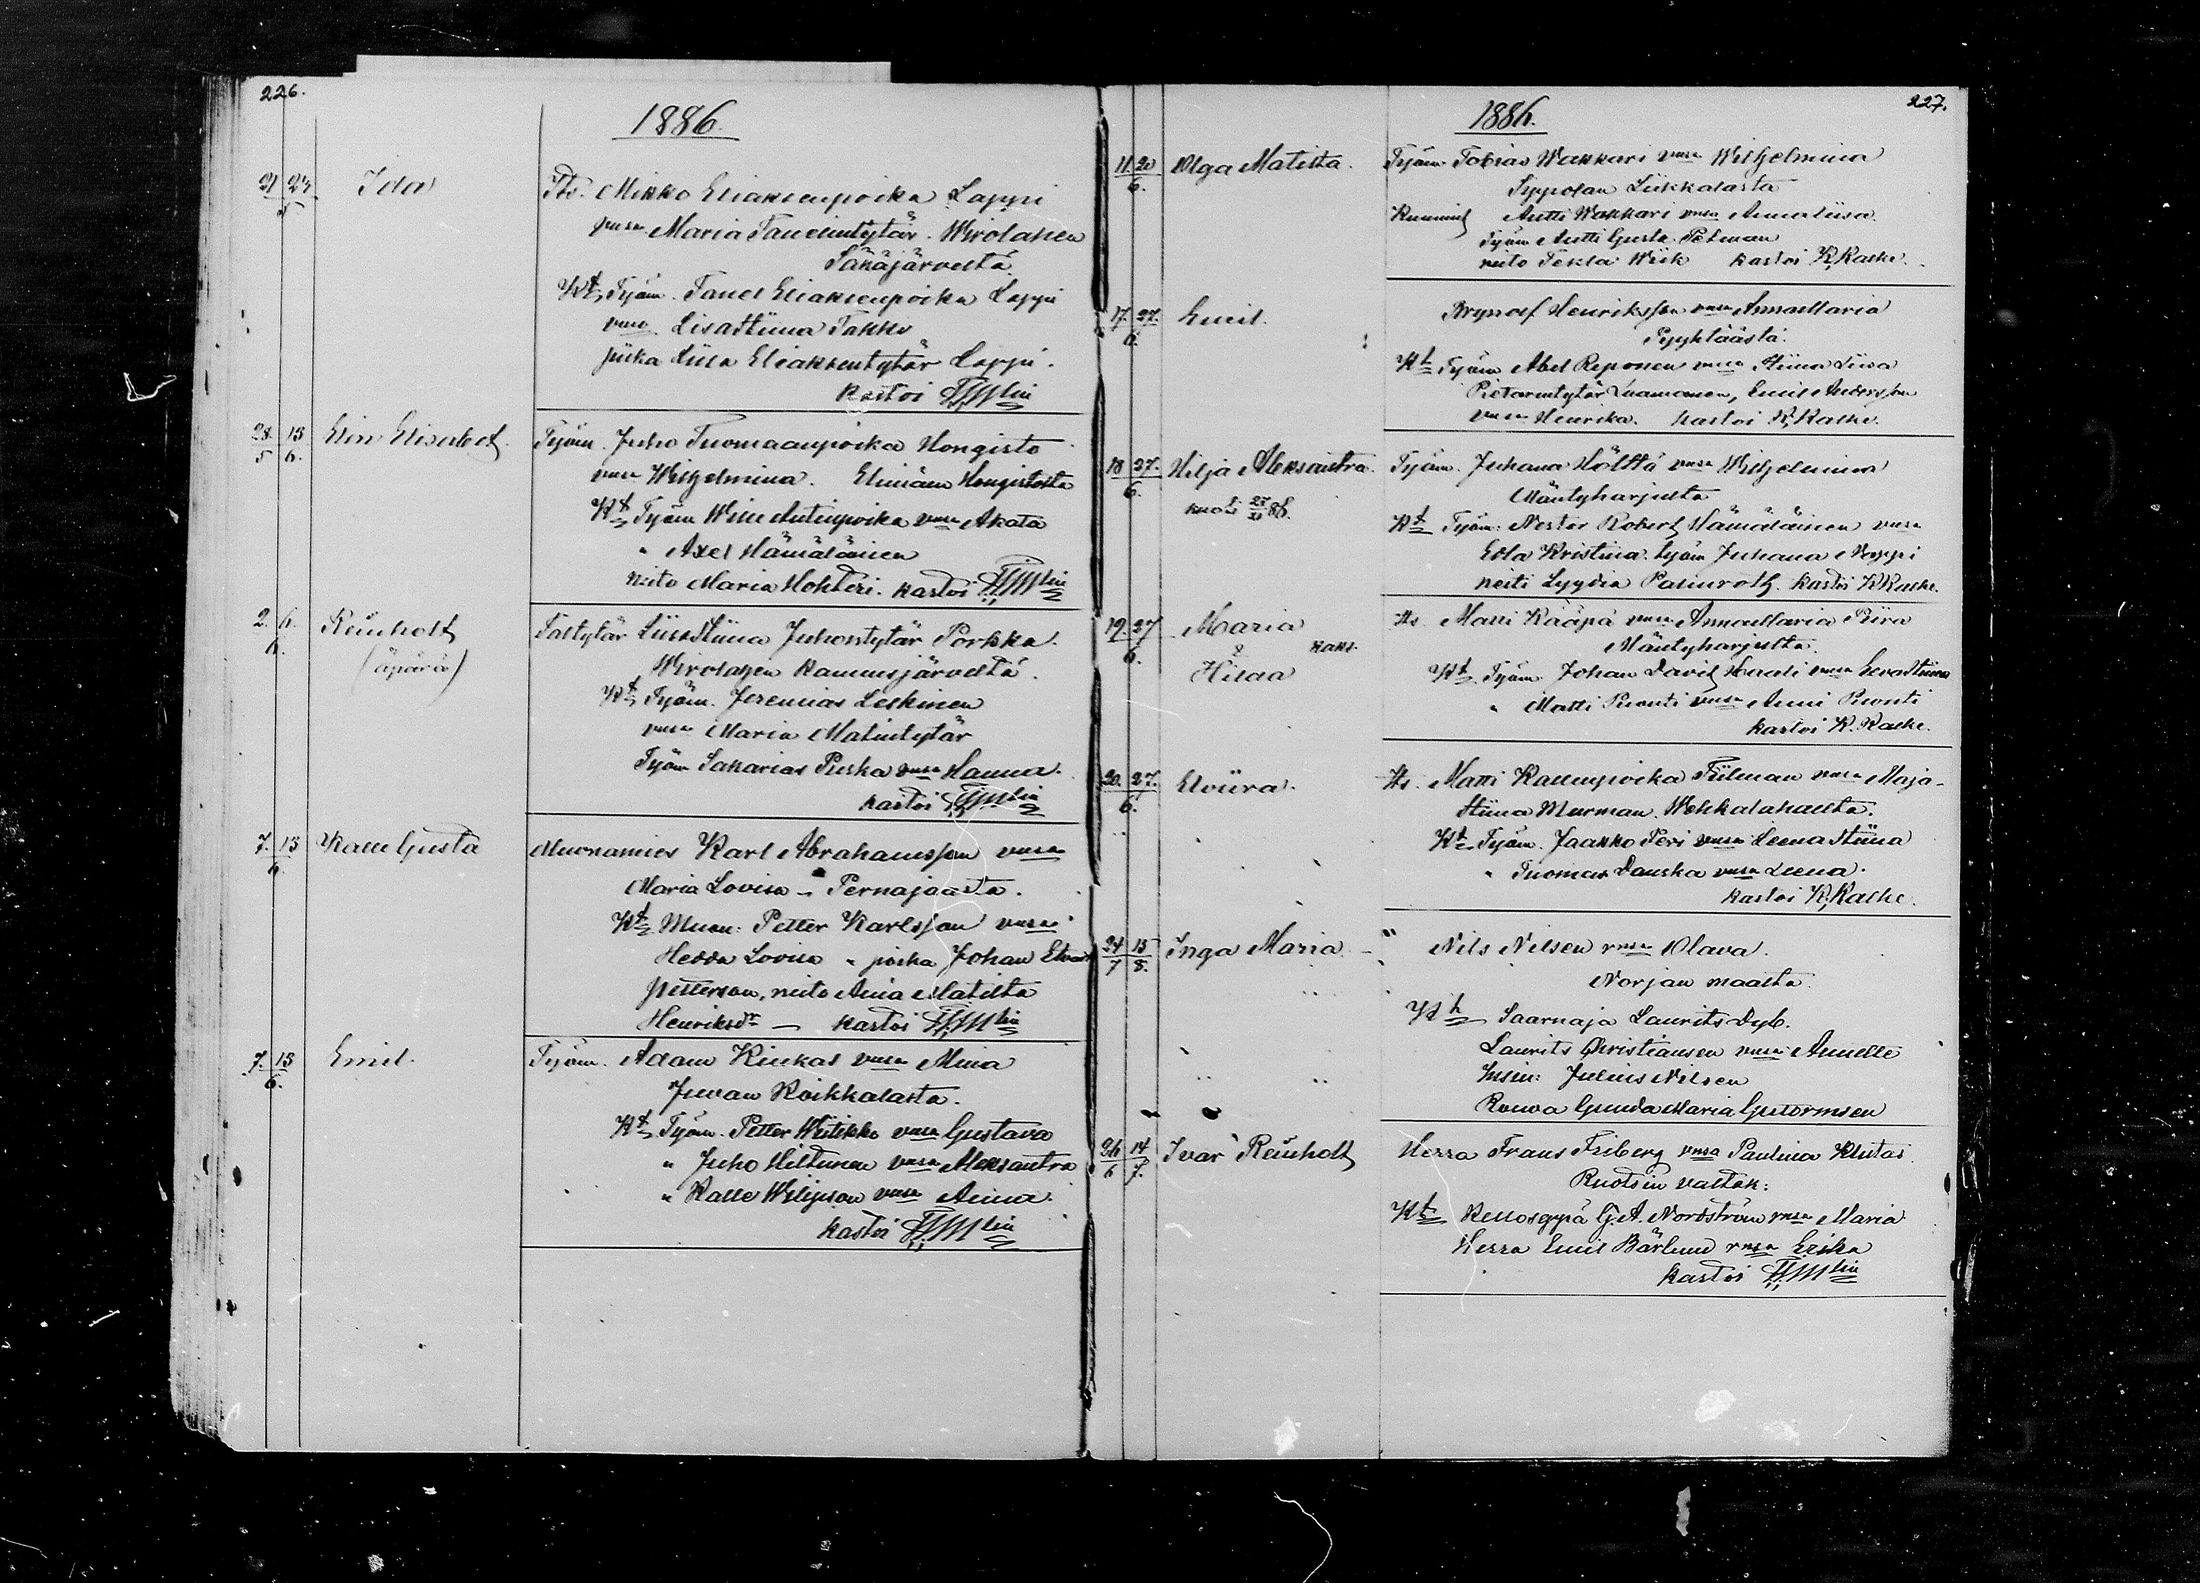 226.
1886.
21 23 Ida Tts. Mikko Eliaksenpoika Lappi
5 vmsa Maria Taneiintytär. Wirolahen
Säkäjärveltä
Kt Työm. Tanel Eliaksenpoika Lappi
vmsa LisaStiina Takko
piika Liisa Eliaksentytär Lappi.
kastoi
28. 13 Elin Elisabet. Työm. Juho Tuomaanpoika Hongisto
5 6. vmsa Wilhelmina. Elimäen Hongistosta
Kt Työm Wille Antinpoika vmsa Akata
" Axel Hämäläinen
neito Maria Mohteri. kastoi
2. 6. Reinholt Tältytär LiisaStiina Juhontytär Porkka.
6. (äpärä) Wirolahen Kamusjärveltä.
Kt Työm. Jeremias Leskinen
vmsa Maria Matintytär
Työm Sakarias Puska vmsa Hanna.
kastoi
7. 13 Kalle Gusta Muonamies Karl Abrahamsson vmsa
6. Maria Lovisa – Pernajaasta.
Kt Muon: Petter Karlsson vmsa
Hedda Lovisa " poika Johan Edvard
Petterson, neito Aina Matilta
Henriksdr – kastoi
7. 13 Emil. Työm. Adam Kiukas vmsa Miina
6. Juvan Koikkalasta.
Kt Työm. Petter Wiitikko vmsa Gustava
" Juho Hiltunen vmsa Aleksantra
" Kalle Wilipson vmsa Aina.
kastoi
227.
1886.
11. 20 Olga Matilta. Työm. Tobias Wakkari vmsa Wilhelmina
6. Sippolan Liikkalasta
Kummit Antti Wakkari vmsa Annaliisa.
Työm Antti Gusta Petman
neito Tekla Wiik kastoi K. Kaske.
17. 27. Emil. Brynolf Henriksson vmsa AnnaMaria
6. Pyyhtäästä.
Kt Työm Abel Reponen vmsa Stiina Liisa
Pietarintytär, Emil Andersson
vmsa Henrika. kastoi K. Kaske.
18 27. Hilja Aleksantra. Työm. Juhana Hölttä vmsa Wilhelmina
6. kuoli 86. Mäntyharjulta
Kt Työm: Nestor Robert Hämäläinen vmsa
Edla Kristina. työm Juhana Nappi
neiti Lyydia Palinroth. kastoi K. Kaske.
19. 27 Maria Its. Matti Kääpä vmsa AnnaMaria Piira
6. & kaks. Mäntyharjulta.
Hilda Kt Työm. Johan David vmsa EevaStiina
" Matti Puonti vmsa Anni Puonti
kastoi K. Kaske.
20. 27. Elviira. Its. Matti Kallenpoika Tiilman vmsa Maja-
6. Stiina Murman. Wehkalahdelta.
Kt Työm. Jaakko Peri vmsa LeenaStiina
" Tuomas Danska vmsa Leena.
kastoi K. Kaske.
24 15 Inga Maria – Nils Nilsen vmsa Olava.
7 8. Norjan maalta.
Kt Saarnaja Laurits Dyb.
Laurits Christiansen vmsa Annelle
Insin: Julius Nilsen
Rouva Gunda Maria Guttormsen
26 14 Ivar Reinholt Herra Frans Friberg vmsa Paulina Klutas
6 7. Ruotsin valtak:
Kt Kelloseppä G. A. Nordström vmsa Maria
Herra Emil Bärlund vmsa Erika
kastoi